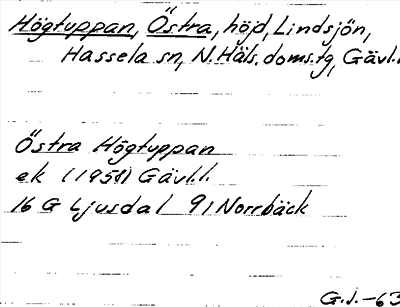 Högtuppan, Östra, höjd, Lindsjön,
Hassela sn, N. Häls. doms.tg, Gävl.l.
Östra Högtuppan
ek (1958) Gävl.l.
16 G Ljusdal 9 i Norrbäck
G.J.-63